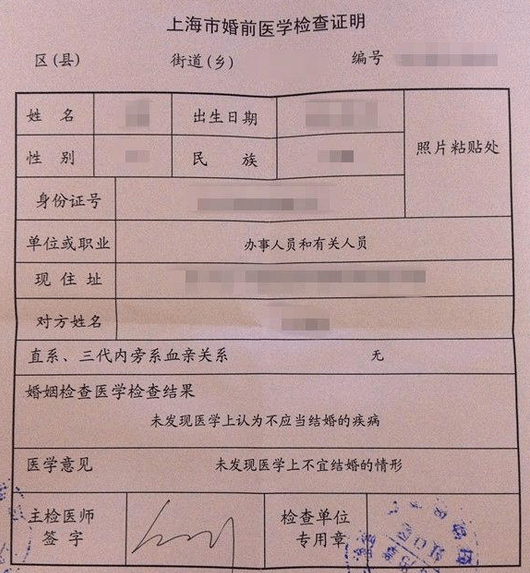 上海市婚前医学检查证明
区(县) 街道(乡) 编号
姓 名 出生日期
照片粘贴处
性 别 民 族
身份证号
单位或职业 办事人员和有关人员
现 住 址
对方姓名
直系、三代内旁系血亲关系 无
婚姻检查医学检查结果
未发现医学上认为不应当结婚的疾病
医学意见 未发现医学上不宜结婚的情形
主检医师 检查单位
签 字 专用章